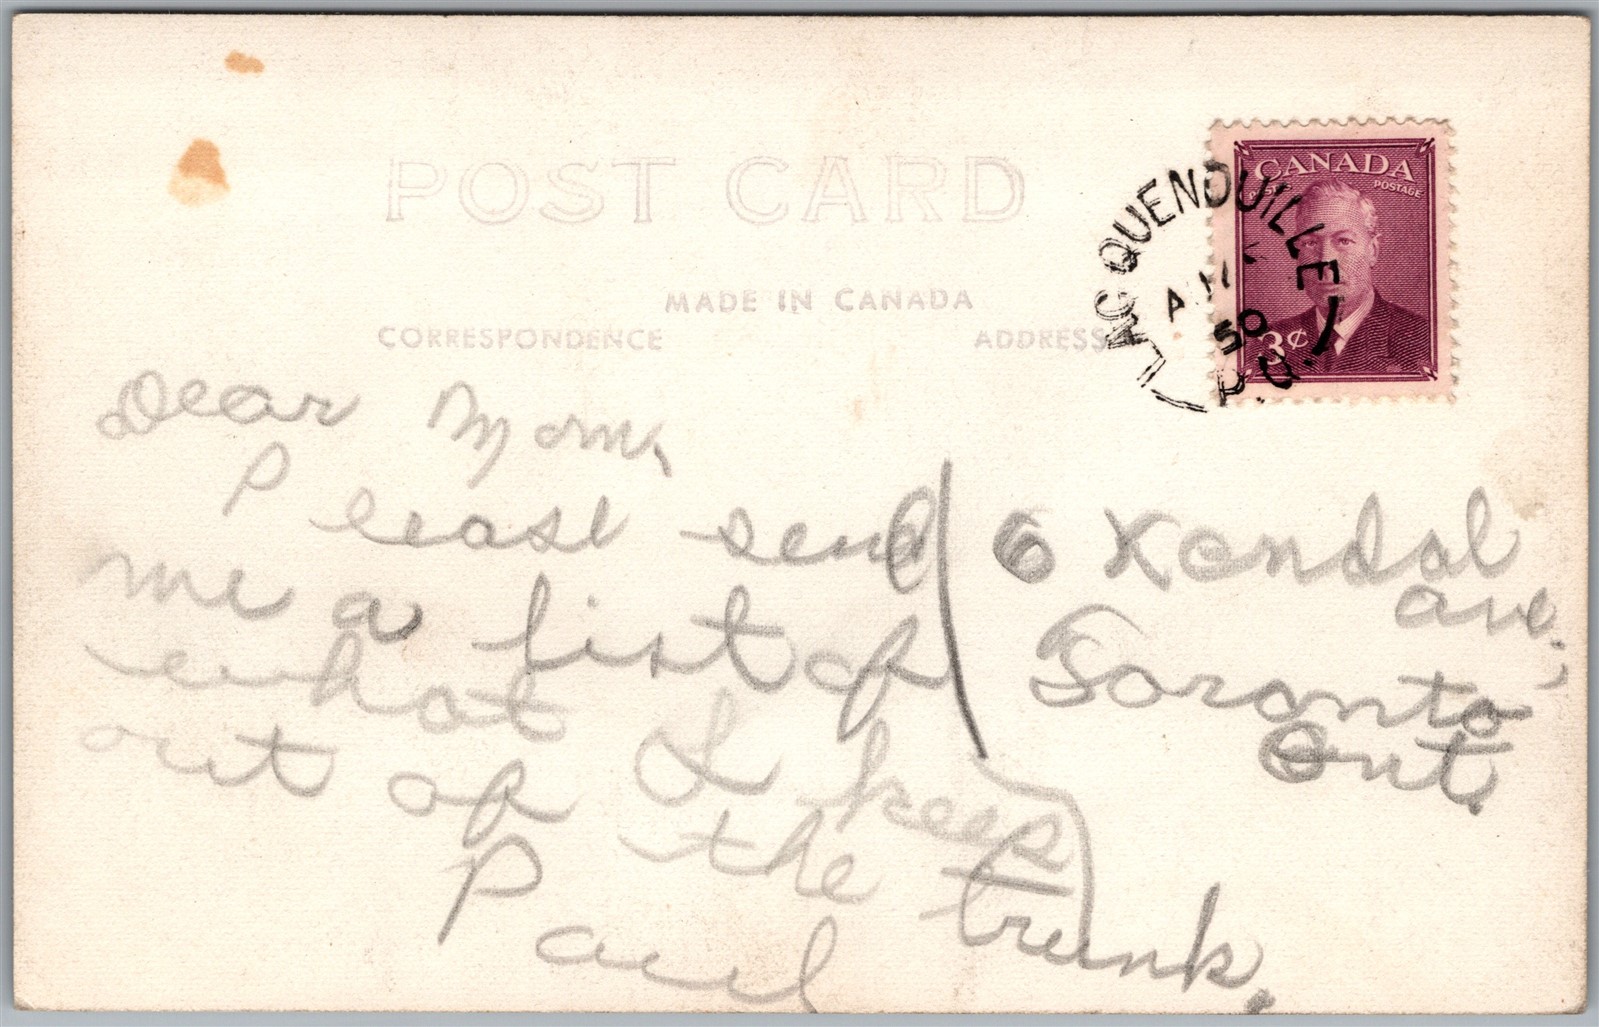 POST CARD
MADE IN CANADA
CORRESPONDENCE
ADDRESS
LAC QUENOUILLE
50
P.Q.
CANADA
POSTAGE
3¢
Dear Mom,
Please send
me a list of
what I keep
out of the trunk.
Paul
6 Kendal
ave.,
Toronto
Ont.